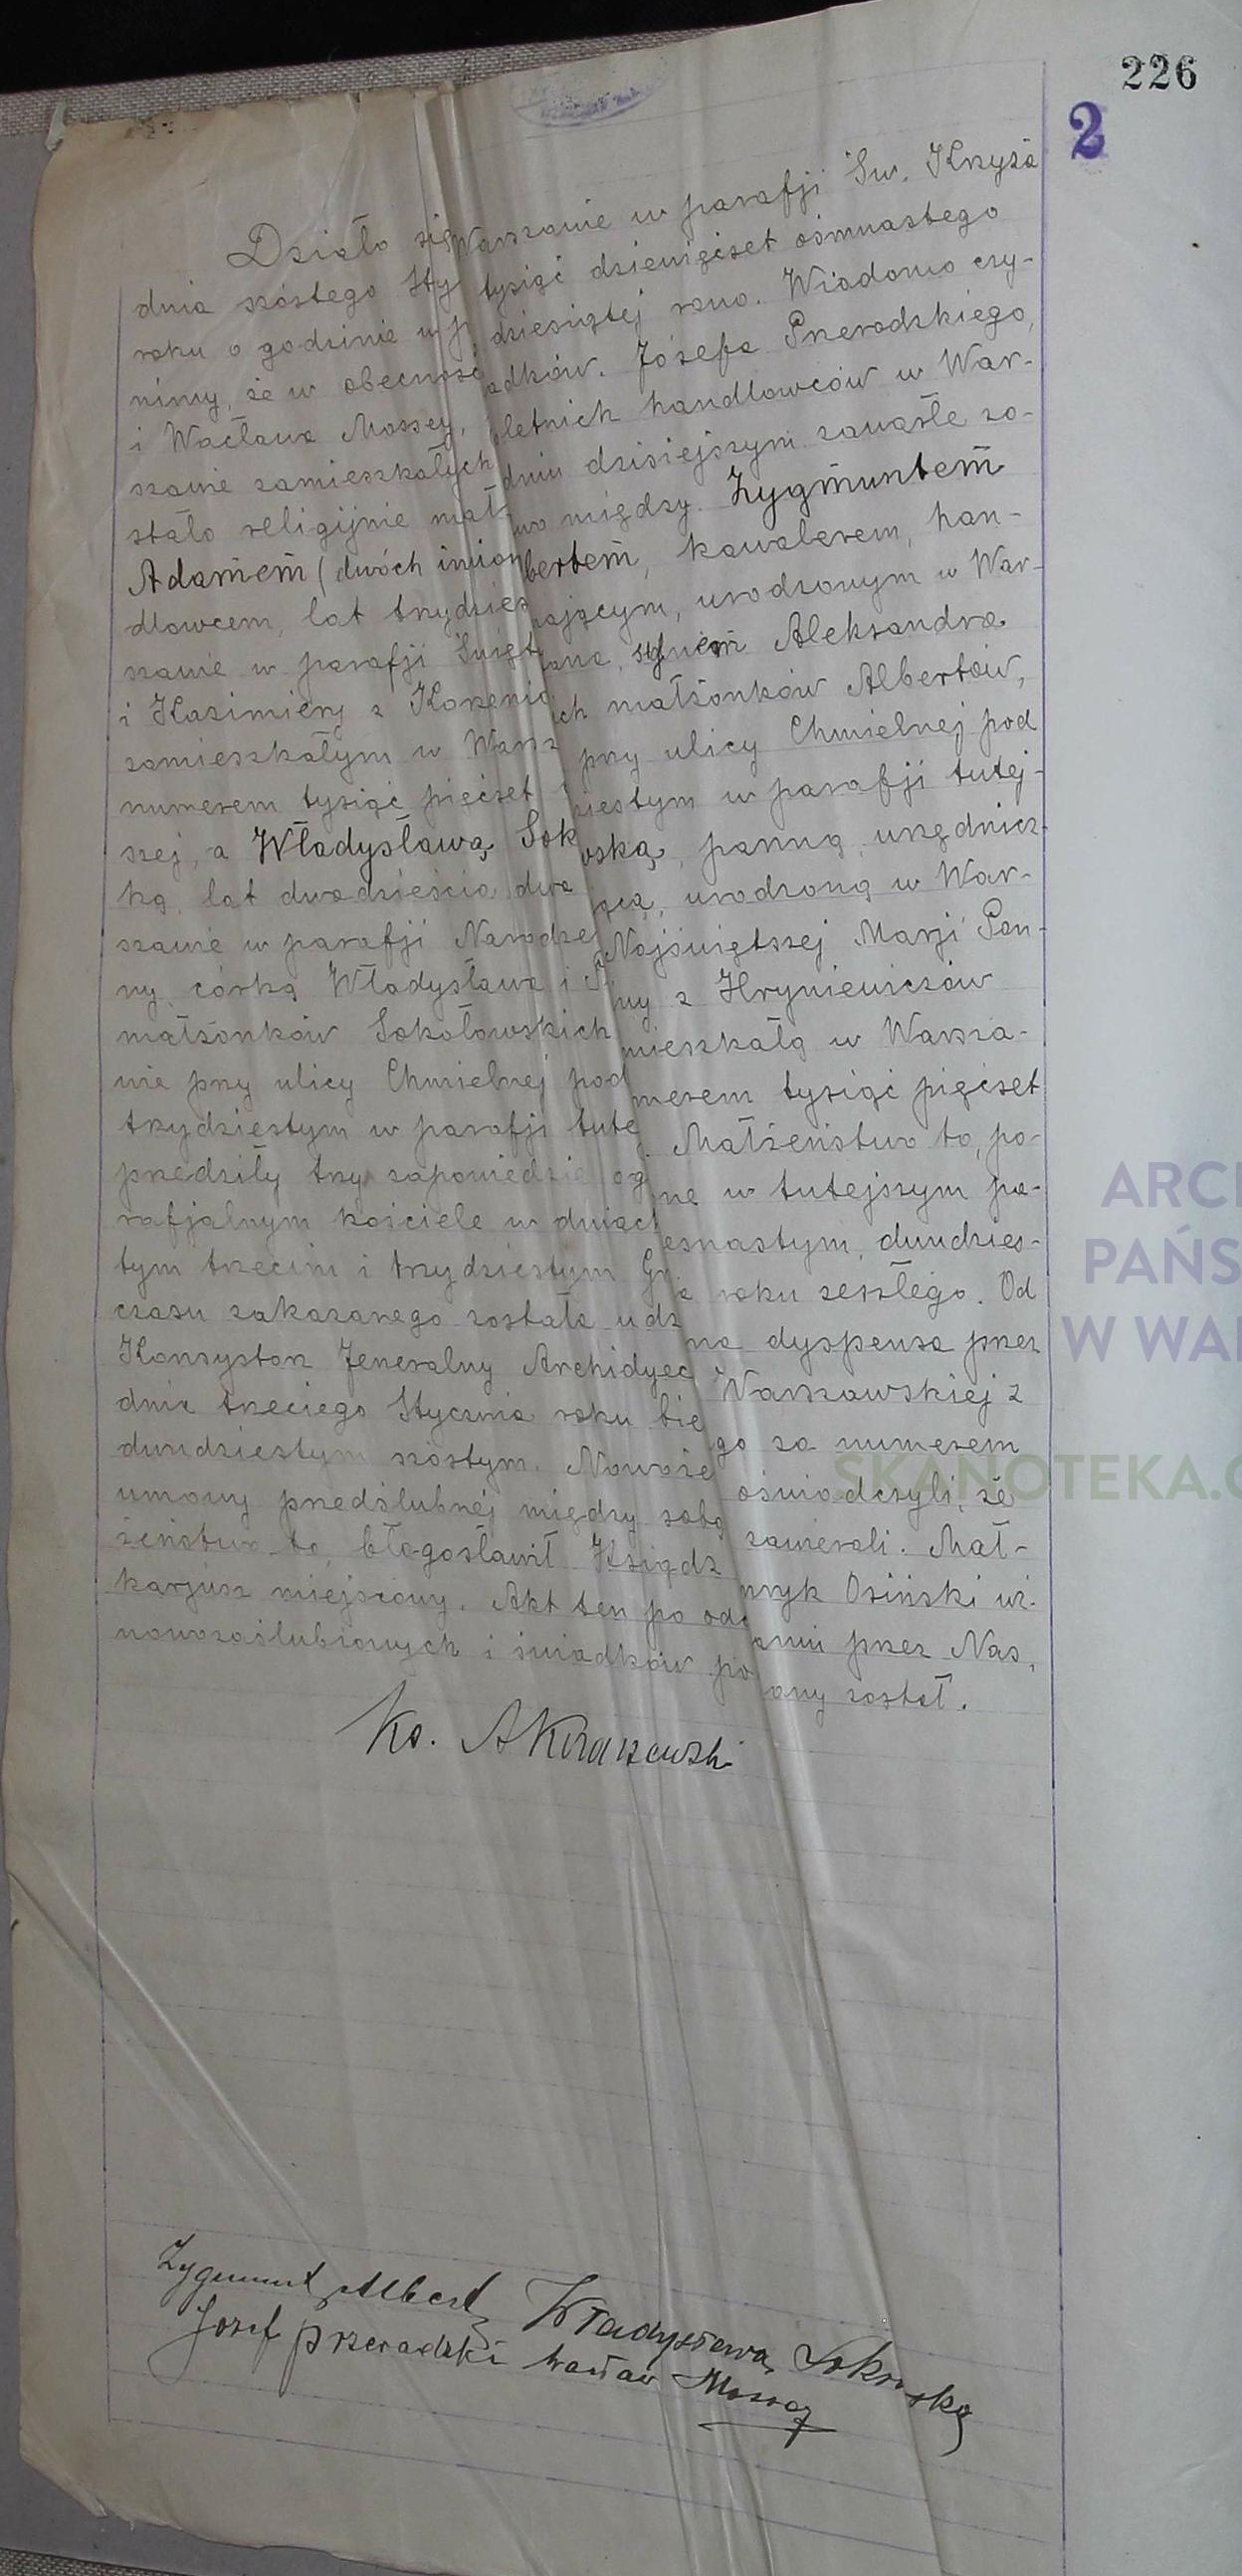 226
2
Działo się Warszawie w parafji Św. Krzyża
dnia szóstego Sty tysiąc dziewięćset ośmnastego
roku o godzinie w p dziesiątej rano. Wiadomo czy-
nimy, że w obecnośc adków. Józefa Przerodzkiego,
i Wacława Mossey, letnich handlowców w War-
szawie zamieszkałych dniu dzisiejszym zawarte zo-
stało religijnie małż wo między. Zygmuntem
Adamem (dwóch imion bertem, kawalerem, han-
dlowcem, lat trzydzies ającym, urodzonym w War-
szawie w parafji Święt ana, synem Aleksandra
i Kazimiery z Korzenio ich małżonków Albertów,
zamieszkałym w Warsz przy ulicy Chmielnej pod
numerem tysiąc pięćset iestym w parafji tutej-
szej, a Władysławą Sok wską, panną, urzędnicz-
ką, lat dwadzieścia dwa jącą, urodzoną w War-
szawie w parafji Narodze Najświętszej Marji Pan-
ny, córką Władysława i ny z Hryniewiczów
małżonków Sokołowskich mieszkałą w Warsza-
wie przy ulicy Chmielnej pod merem tysiąc pięćset
trzydziestym w parafji tutej. Małżeństwo to, po-
przedziły trzy zapowiedzie og ne w tutejszym pa-
rafjalnym kościele w dniach esnastym, dwudzies-
tym trzecim i trzydziestym Gr a roku zeszłego. Od
czasu zakazanego została udz na dyspensa przez
Konsystorz Jeneralny Archidyec Warszawskiej z
dnia trzeciego Stycznia roku bie go za numerem
dwudziestym szóstym. Nowoże oświadczyli, że
umowy przedślubnej między sobą zawierali. Mał-
żeństwo to, błogosławił Ksiądz nryk Osiński wi-
karjusz miejscowy. Akt ten po odc aniu przez Nas,
nowozaślubionych i świadków po any został.
Ks.
Zygmunt Albert Władysława
Józef Przeradzki Wacław Mossey
ARCH
PAŃS
W WAR
SKANOTEKA.